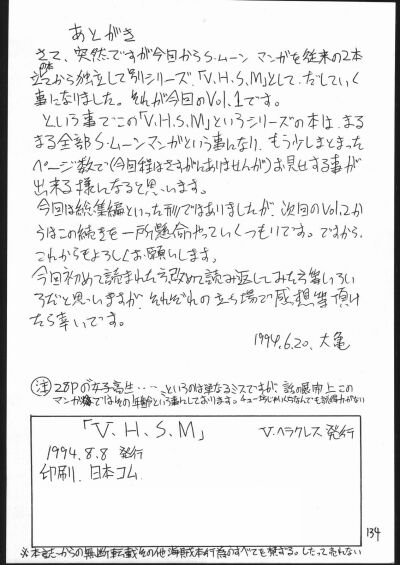 あとがき
さて、突然ですが今回からS・ムーン マンガを従来の2本
立てから独立して別シリーズ、「V.H.S.M」として、だしていく
事になりました。それが今回のVol.1です。
という事でこの「V.H.S.M」というシリーズの本は、まる
まる全部S・ムーンマンガという事になり、もう少しまとまった
ページ数で(今回程はさすがにありませんが)お見せする事が
出来る様になると思います。
今回は総集編といった形ではありましたが、次回のVol.2か
らはこの続きを一所懸命やっていくつもりです。ですから、
これからもよろしくお願いします。
今回初めて読まれた方、改めて読み返してみた方等いろい
ろだと思いますが、それぞれの立ち場で感想等頂け
たら幸いです。
1994.6.20. 大亀
注 28Pの女子高生・・・・というのは単なるミスですが、話の展開上この
マンガではその年齢という事にしております。
「V.H.S.M」 V.ヘラクレス 発行
1994.8.8 発行
印刷. 日本コム.
134
※本誌からの無断転載その他海賊本行為のすべてを禁ずる。